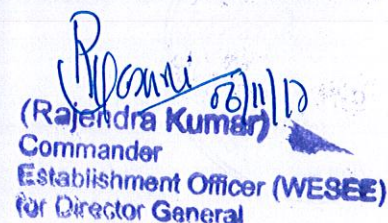 06/11/12
(Rajendra Kumar)
Commander
Establishment Officer (WESEE)
for Director General